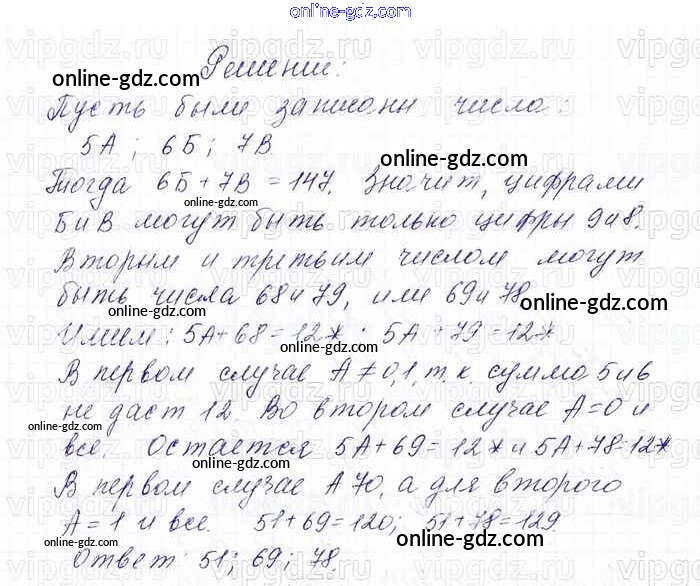 Решение:
Пусть были записаны числа:
5А; 6Б; 7В
Тогда 6Б+7В=147. Значит, цифрами
Б и В могут быть только цифры 9 и 8.
Вторым и третьим числом могут
быть числа 68 и 79, или 69 и 78.
Имеем: 5А+68=12*; 5А+79=12*
В первом случае А≠0,1, т.к. сумма 5 и 6
не даст 12. Во втором случае А=0 и
все. Остается 5А+69=12* и 5А+78=12*
В первом случае А70, а для второго
А=1 и все. 51+69=120; 51+78=129.
Ответ: 51; 69; 78.
online-gdz.com
online-gdz.com
online-gdz.com
online-gdz.com
online-gdz.com
online-gdz.com
online-gdz.com
online-gdz.com
online-gdz.com
online-gdz.com
online-gdz.com
online-gdz.com
online-gdz.com
online-gdz.com
vipgdz.ru